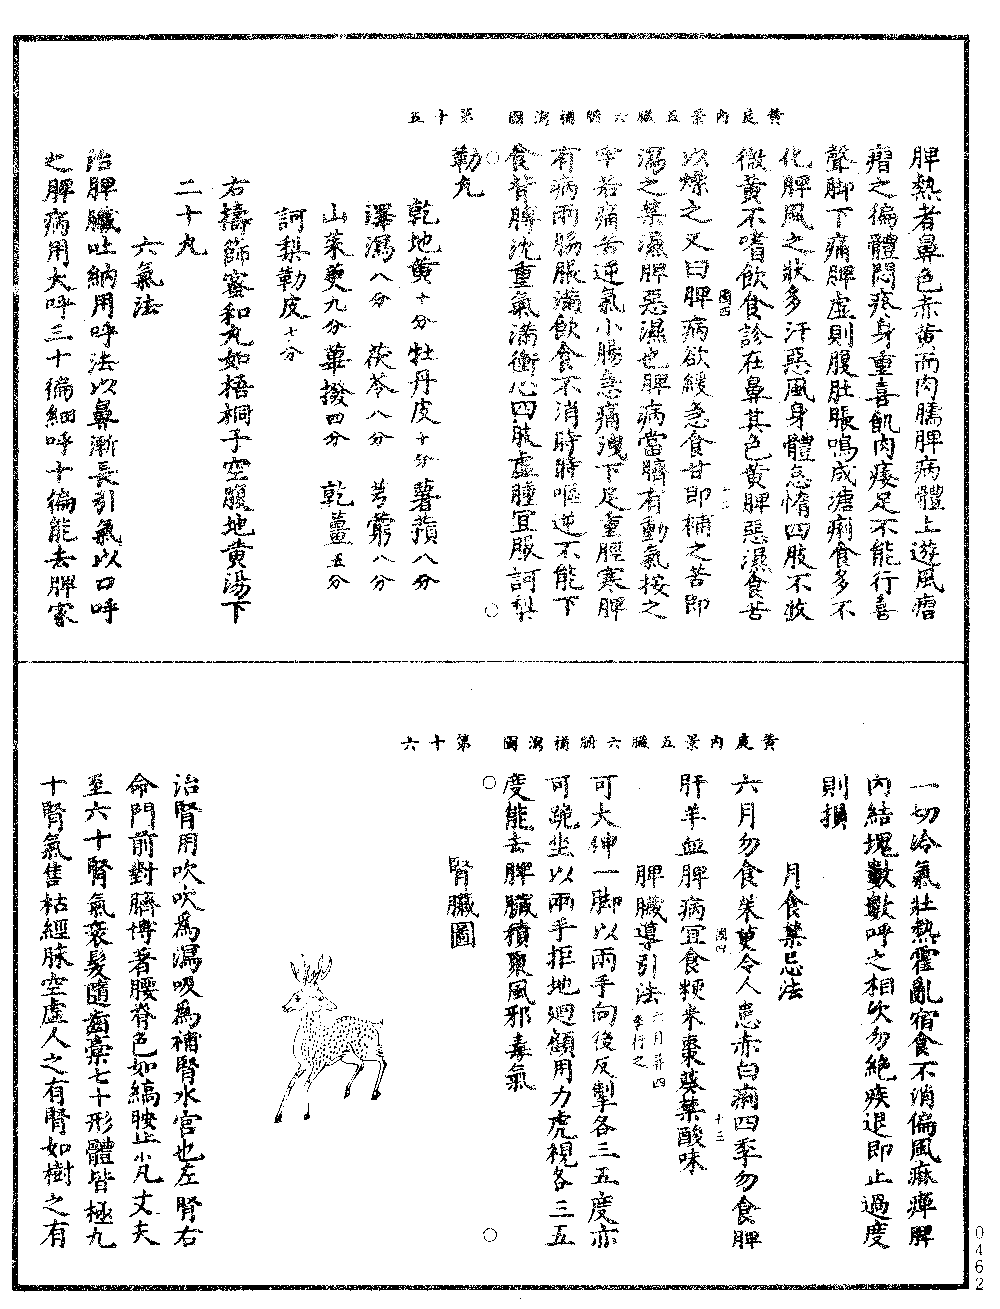 黃庭內景五臟六腑補瀉圖　第十五
脾熱者鼻色赤黃而肉臑脾病體上遊風瘖
㿇之徧體悶疼身重喜飢肉痿足不能行喜
聲脚下痛脾虛則腹肚脹鳴成溏痢食多不
化脾風之狀多汗惡風身體怠惰四肢不收
微黃不嗜飲食診在鼻其色黃脾惡濕食苦
以燥之又曰脾病欲緩急食甘即補之苦即
瀉之禁濕脾惡濕也脾病當臍有動氣按之
牢若痛苦逆氣小腸急痛洩下足重脛寒脾
有病兩腸脹滿飲食不消時時嘔逆不能下
食背膊沈重氣滿衝心四肢虛腫宜服訶梨
勒丸
乾地黃十分牡丹皮十分薯蕷八分
澤瀉八分　茯苓八分　芎藭八分
山茱萸九分蓽撥四分　乾薑五分
訶梨勒皮十分
右擣篩蜜和丸如梧桐子空腹地黃湯下
二十丸
六氣法
治脾臟吐納用呼法以鼻漸長引氣以口呼
之脾病用大呼三十徧細呼十徧能去脾家
黃庭內景五臟六腑補瀉圖　第十六
一切冷氣壯熱霍亂宿食不消偏風痲痺脾
內結塊數數呼之相次勿絕疾退即止過度
則損
月食禁忌法
六月勿食茱萸令人患赤白痢四季勿食脾
肝羊血脾病宜食粳米棗葵禁酸味
脾臟導引法六月并四季行之
可大伸一脚以兩手向後反掣各三五度亦
可跪坐以兩手拒地迴顧用力虎視各三五
度能去脾臟積聚風邪毒氣
腎臟圖
治腎用吹吹為瀉吸為補腎水宮也左腎右
命門前對臍博著腰脊色如縞胺止小凡丈夫
至六十腎氣衰髮墮齒槀七十形體皆極九
十腎氣焦枯經脉空虛人之有腎如樹之有
0462